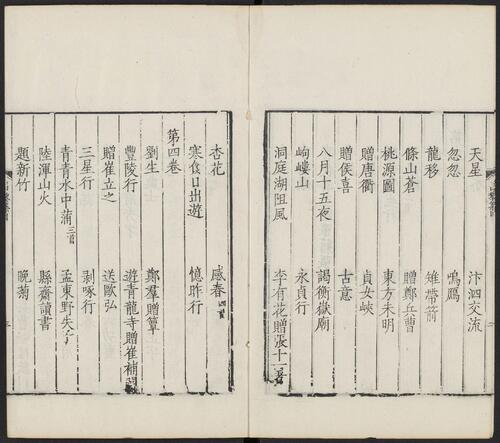 天星 汴泗交流
忽忽 鳴鴈
龍移 雉帶箭
條山蒼 贈鄭兵曹
桃源圖 東方未明
贈唐衢 貞女峽
贈侯喜 古意
八月十五夜 謁衡嶽廟
岣嶁山 永貞行
洞庭湖阻風 李有花贈張十一署
杏花 感春四首
寒食日出遊 憶昨行
第四卷
劉生 鄭羣贈簟
豐陵行 遊青龍寺贈崔補闕
贈崔立之 送歐弘
三星行 剥啄行
青青水中蒲三首 孟東野失子
陸渾山火 縣齋讀書
題新竹 晚菊